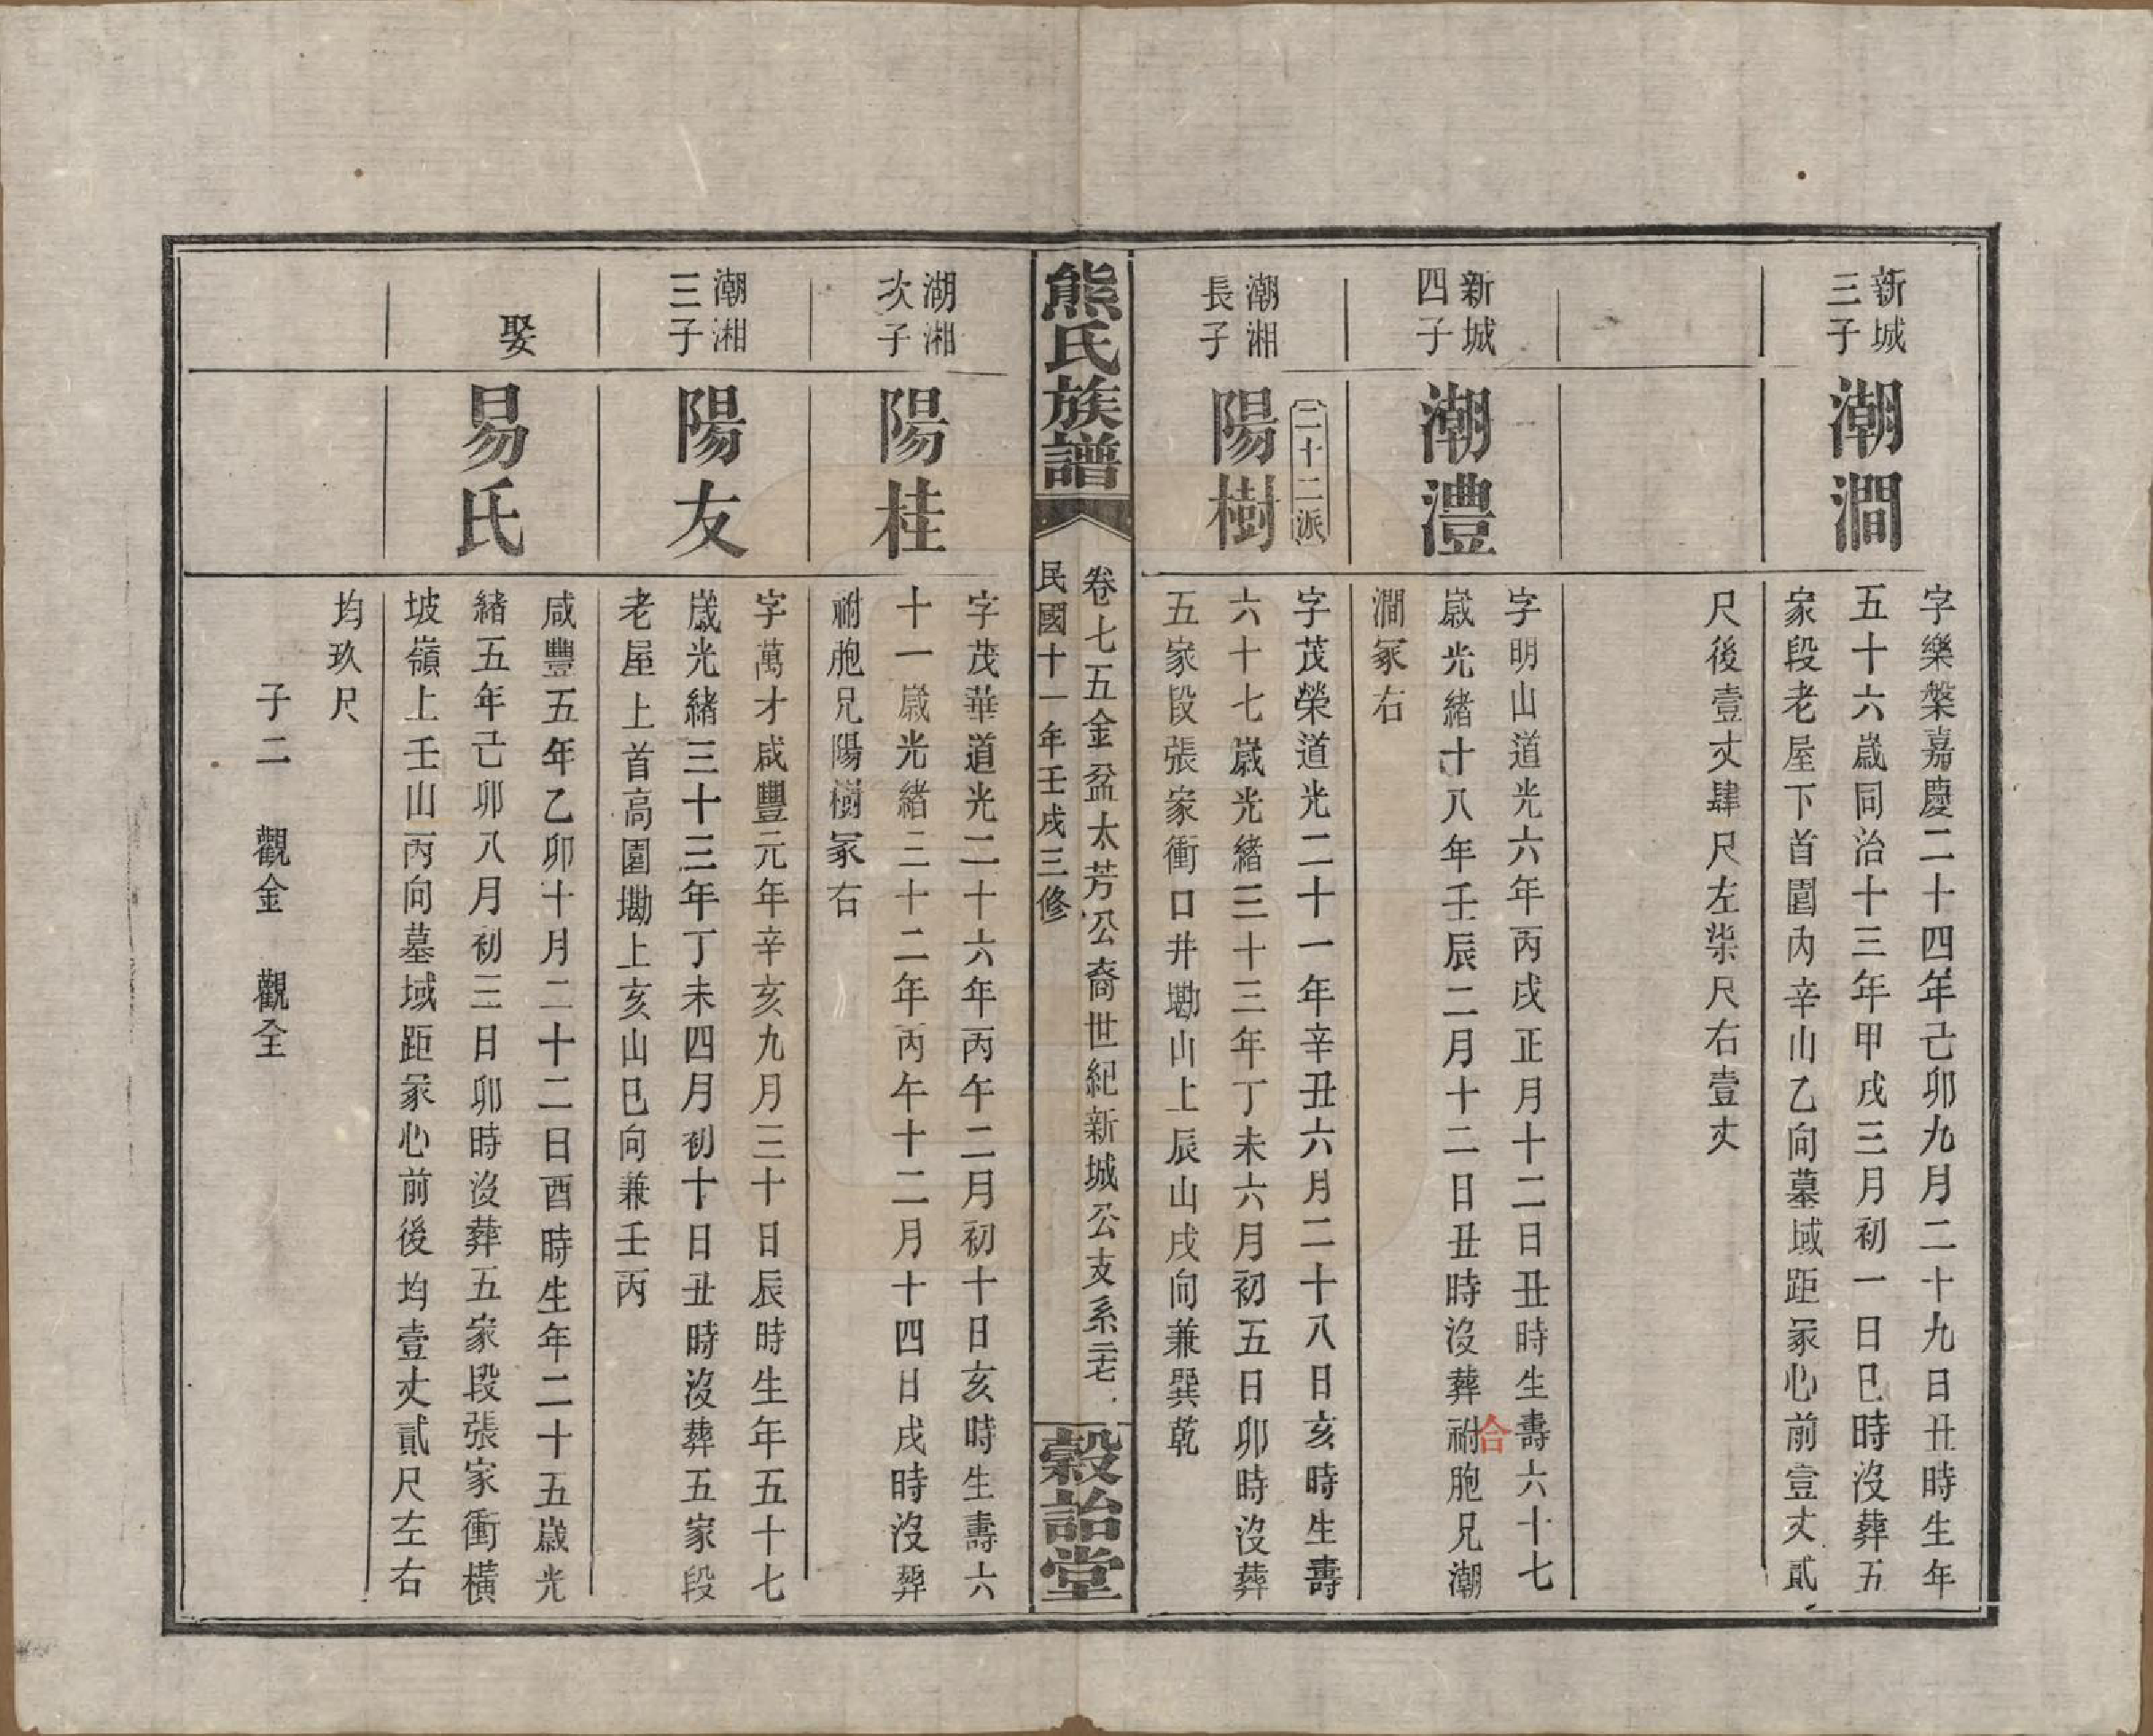 新城
三子
潮澗
字樂槃嘉慶二十四年己卯九月二十九日丑時生年
五十六歲同治十三年甲戌三月初一日巳時沒葬五
家段老屋下首圍內辛山乙向墓域距冢心前壹丈貳
尺後壹丈肆尺左柒尺右壹丈
新城
四子
潮澧
字明山道光六年丙戌正月十二日丑時生壽六十七
歲光緒十八年壬辰二月十二日丑時沒葬祔胞兄潮
合
澗冢右
二十二派
潮湘
長子
陽樹
字茂榮道光二十一年辛丑六月二十八日亥時生壽
六十七歲光緒三十三年丁未六月初五日卯時沒葬
五家段張家衝口井墈山上辰山戌向兼巽乾
熊氏族譜
卷七五金盆太芳公裔世紀新城公支系二十七
民國十一年壬戌三修
穀詒堂
湖湘
次子
陽桂
字茂華道光二十六年丙午二月初十日亥時生壽六
十一歲光緒三十二年丙午十二月十四日戌時沒葬
祔胞兄陽樹冢右
潮湘
三子
陽友
字萬才咸豐元年辛亥九月三十日辰時生年五十七
歲光緒三十三年丁未四月初十日丑時沒葬五家段
老屋上首高園墈上亥山巳向兼壬丙
娶
易氏
咸豐五年乙卯十月二十二日酉時生年二十五歲光
緒五年己卯八月初三日卯時沒葬五家段張家衝橫
坡嶺上壬山丙向墓域距冢心前後均壹丈貳尺左右
均玖尺
子二 觀金 觀全